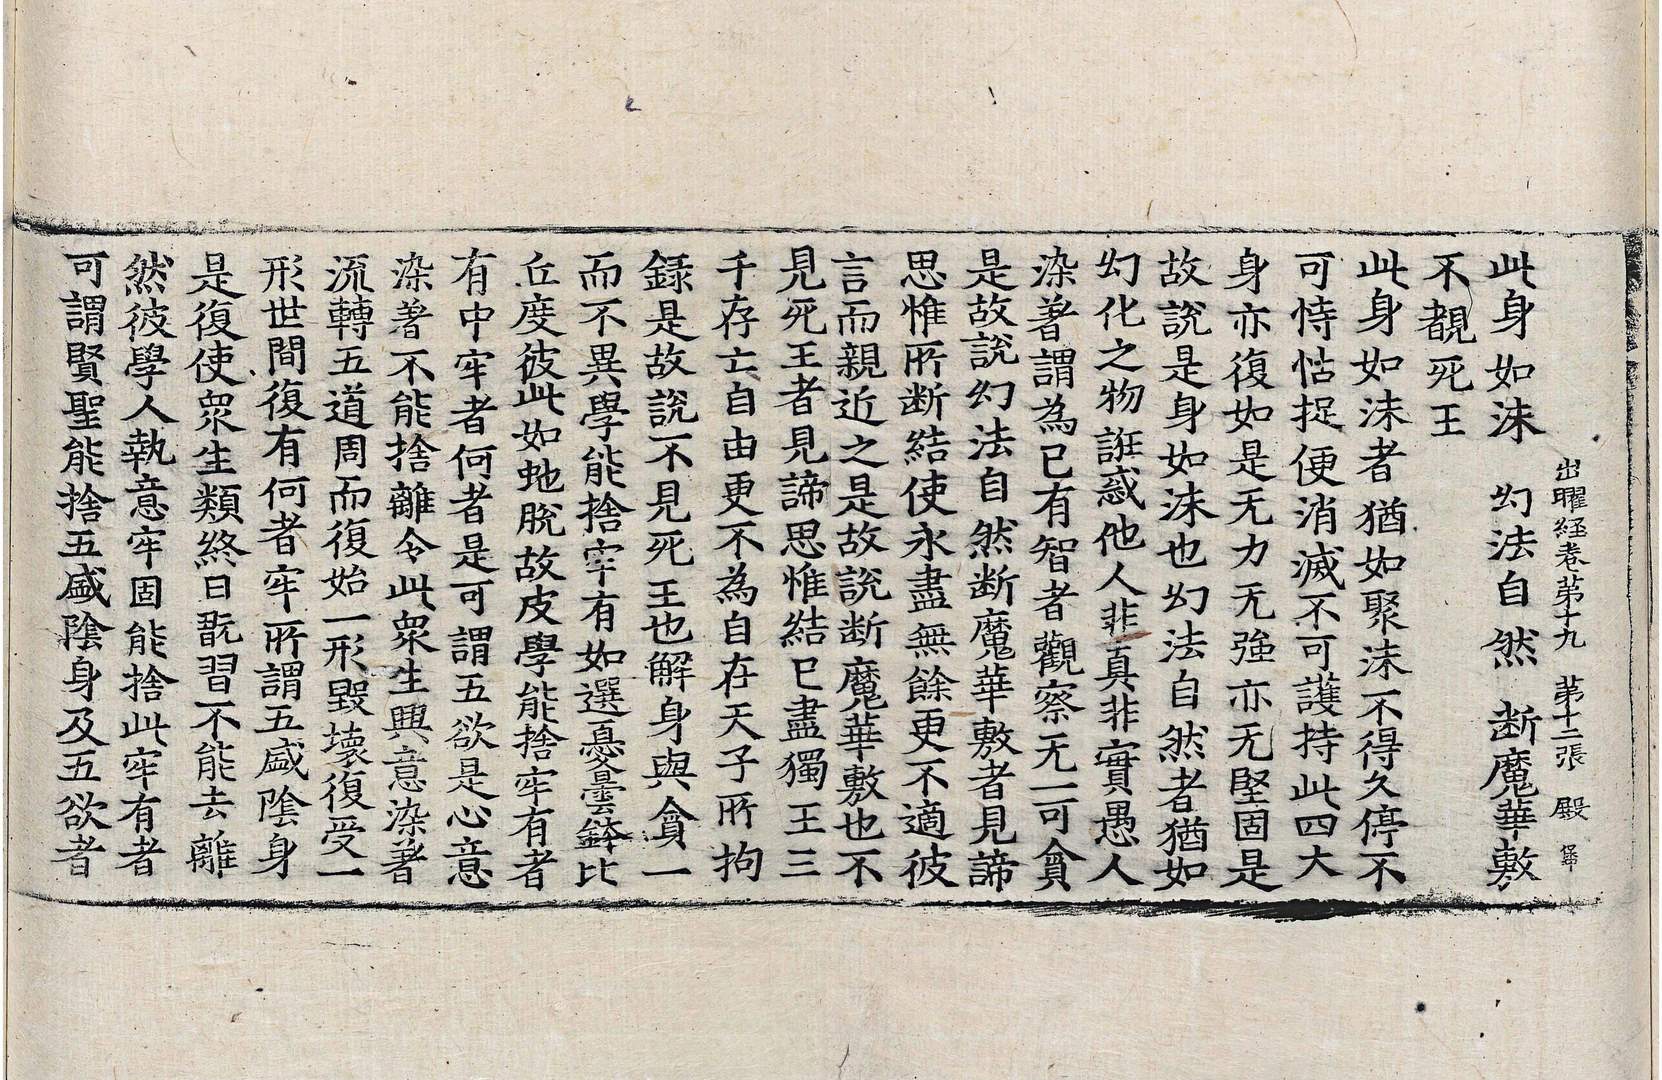 出曜経卷第十九　第十二張　殿
此身如沫　幻法自然　断魔華敷
不覩死王
此身如沫者猶如聚沫不得久停不
可恃怙捉便消滅不可護持此四大
身亦復如是无力无強亦无堅固是
故說是身如沫也幻法自然者猶如
幻化之物誑惑他人非真非實愚人
染著謂為已有智者觀察无一可貪
是故說幻法自然断魔華敷者見諦
思惟所断結使永盡無餘更不適彼
言而親近之是故說断魔華敷也不
見死王者見諦思惟結已盡獨王三
千存亡自由更不為自在天子所拘
録是故說不見死王也解身與貪一
而不異學能捨牢有如選憂曇鉢比
丘度彼此如虵脫故皮學能捨牢有者
有中牢者何者是可謂五欲是心意
染著不能捨離令此衆生興意染著
流轉五道周而復始一形毀壞復受一
形世間復有何者牢所謂五盛陰身
是復使衆生類終日翫習不能去離
然彼學人執意牢固能捨此牢有者
可謂賢聖能捨五盛陰身及五欲者